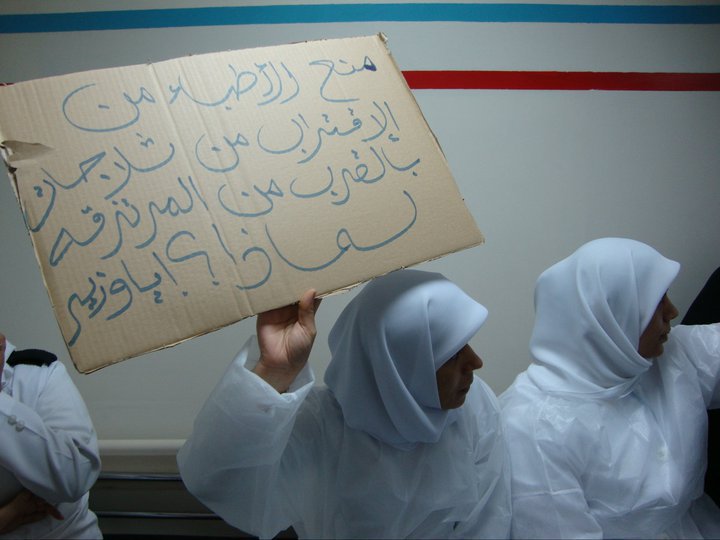 منع الأطباء من
الاقتراب من ثلاجات
بالقرب من المرتزقه
لماذا؟؟ يا وزير